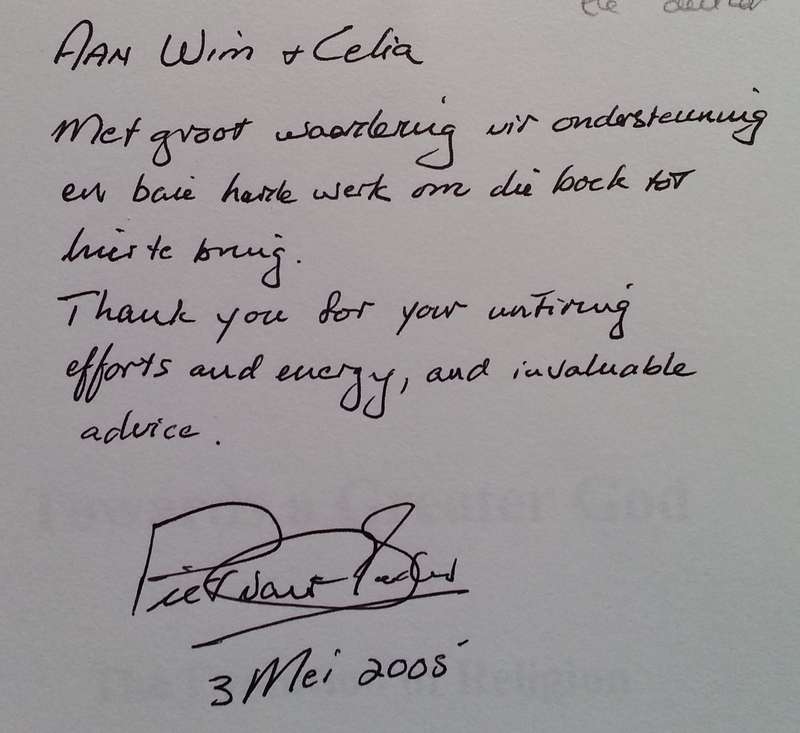 AAN Wim + Celia
Met groot waardering vir ondersteuning
en baie harde werk om die boek tot
hier te bring.
Thank you for your untiring
efforts and energy, and invaluable
advice.
Towards a Greater God
Piet
3 Mei 2005
The of Religion